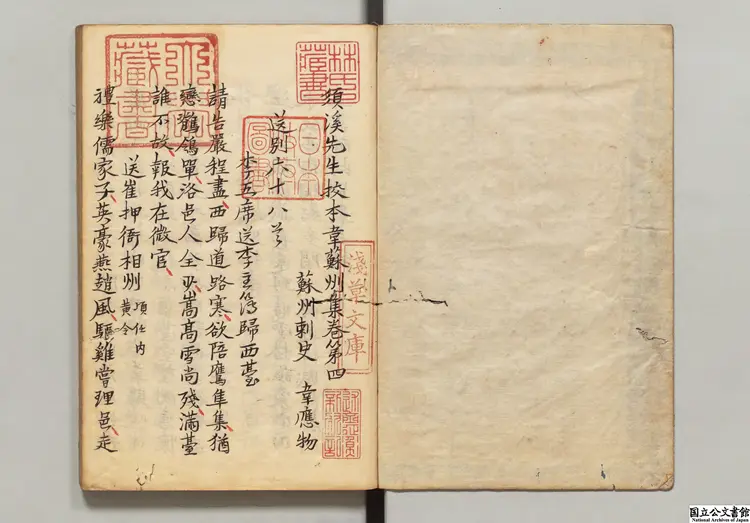 須溪先生校本韋蘇州集卷第四
蘇州刺史 韋應物
送別六十八首
李五席送李主簿歸西臺
請告嚴程盡西歸道路寒欲陪鷹隼集猶
戀鶺鴒單洛邑人全少嵩高雪尚殘滿臺
誰不故報我在微官
送崔押衙相州 項任內黃令
禮樂儒家子英豪燕趙風驅雞嘗理邑走
林氏藏書
日本政府圖書
淺草文庫
藏書
国立公文書館
National Archives of Japan